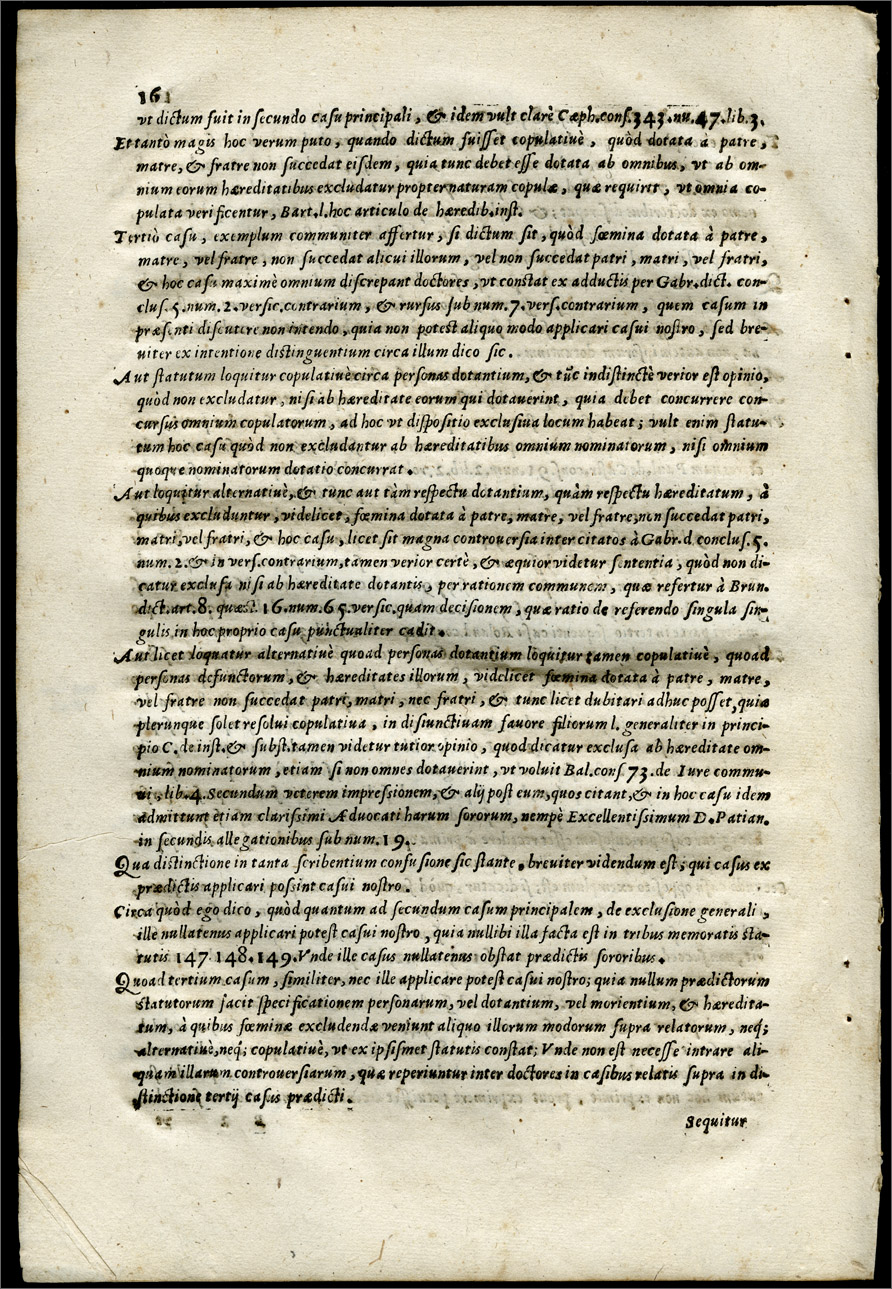 16
vt dictum fuit in secundo casu principali, & idem vult clarè Cæph.cons.343.nu.47.lib.3.
Et tantò magis hoc verum puto, quando dictum fuisset copulatiuè, quòd dotata à patre,
matre, & fratre non succedat eisdem, quia tunc debet esse dotata ab omnibus, vt ab om-
nium eorum hæreditatibus excludatur propter naturam copulæ, quæ requirit, vt omnia co-
pulata verificentur, Bart.l.hoc articulo de hæredib.inst.
Tertiò casu, exemplum communiter affertur, si dictum sit, quòd fœmina dotata à patre,
matre, vel fratre, non succedat alicui illorum, vel non succedat patri, matri, vel fratri,
& hoc casu maximè omnium discrepant doctores, vt constat ex adductis per Gabr.dict. con-
clus.5.num.2.versic.contrarium, & rursus sub num.7.vers.contrarium, quem casum in
præsenti discutere non intendo, quia non potest aliquo modo applicari casui nostro, sed bre-
uiter ex intentione distinguentium circa illum dico sic.
Aut statutum loquitur copulatiuè circa personas dotantium, & tũc indistinctè verior est opinio,
quòd non excludatur, nisi ab hæreditate eorum qui dotauerint, quia debet concurrere con-
cursus omnium copulatorum, ad hoc vt dispositio exclusiua locum habeat; vult enim statu-
tum hoc casu quòd non excludantur ab hæreditatibus omnium nominatorum, nisi omnium
quoque nominatorum dotatio concurrat.
Aut loquitur alternatiuè, & tunc aut tàm respectu dotantium, quàm respectu hæreditatum, à
quibus excluduntur, videlicet, fœmina dotata à patre, matre, vel fratre, non succedat patri,
matri, vel fratri, & hoc casu, licet sit magna controuersia inter citatos à Gabr.d.conclus.5.
num.2.& in vers.contrarium, tamen verior certè, & æquior videtur sententia, quòd non di-
catur exclusa nisi ab hæreditate dotantis, per rationem communem, quæ refertur à Brun.
dict.art.8.quæst.16.num.65.versic.quam decisionem, quæ ratio de referendo singula sin-
gulis in hoc proprio casu punctualiter cadit.
Aut licet loquatur alternatiuè quoad personas dotantium loquitur tamen copulatiuè, quoad
personas defunctorum, & hæreditates illorum, videlicet fœmina dotata à patre, matre,
vel fratre non succedat patri, matri, nec fratri, & tunc licet dubitari adhuc posset, quia
plerunque solet resolui copulatiua, in disiunctiuam fauore filiorum l. generaliter in princi-
pio C. de inst.& subst.tamen videtur tutior opinio, quod dicatur exclusa ab hæreditate om-
nium nominatorum, etiam si non omnes dotauerint, vt voluit Bal.cons.73.de Iure commu-
ni, lib.4.secundum veterem impressionem, & alij post eum, quos citant, & in hoc casu idem
admittunt etiam clarissimi Aduocati harum sororum, nempè Excellentissimum D.Patian.
in secundis allegationibus sub num.19.
Qua distinctione in tanta scribentium confusione sic stante, breuiter videndum est; qui casus ex
prædictis applicari possint casui nostro.
Circa quòd ego dico, quòd quantum ad secundum casum principalem, de exclusione generali,
ille nullatenus applicari potest casui nostro, quia nullibi illa facta est in tribus memoratis sta-
tutis 147.148.149.Vnde ille casus nullatenus obstat prædictis sororibus.
Quoad tertium casum, similiter, nec ille applicare potest casui nostro; quia nullum prædictorum
statutorum facit specificationem personarum, vel dotantium, vel morientium, & hæredita-
tum, à quibus fœminæ excludendæ veniunt aliquo illorum modorum supra relatorum, neq;
alternatiuè, neq; copulatiuè, vt ex ipsismet statutis constat; Vnde non est necesse intrare ali-
quam illarum controuersiarum, quæ reperiuntur inter doctores in casibus relatis supra in di-
stinctione tertij casus prædicti.
Sequitur